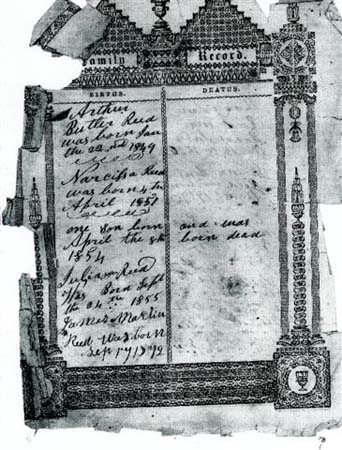 Family Record.
BIRTHS. DEATHS.
Arthur
Butler Reed
was born Jan
the 22nd 1849
Narcissa Reed
was born 4th
April 1851
one Son born and was
April the 8th born dead
1854
Reed
was Born Sept
the 24th 1855
James Martin
Reed was born
Sep 17